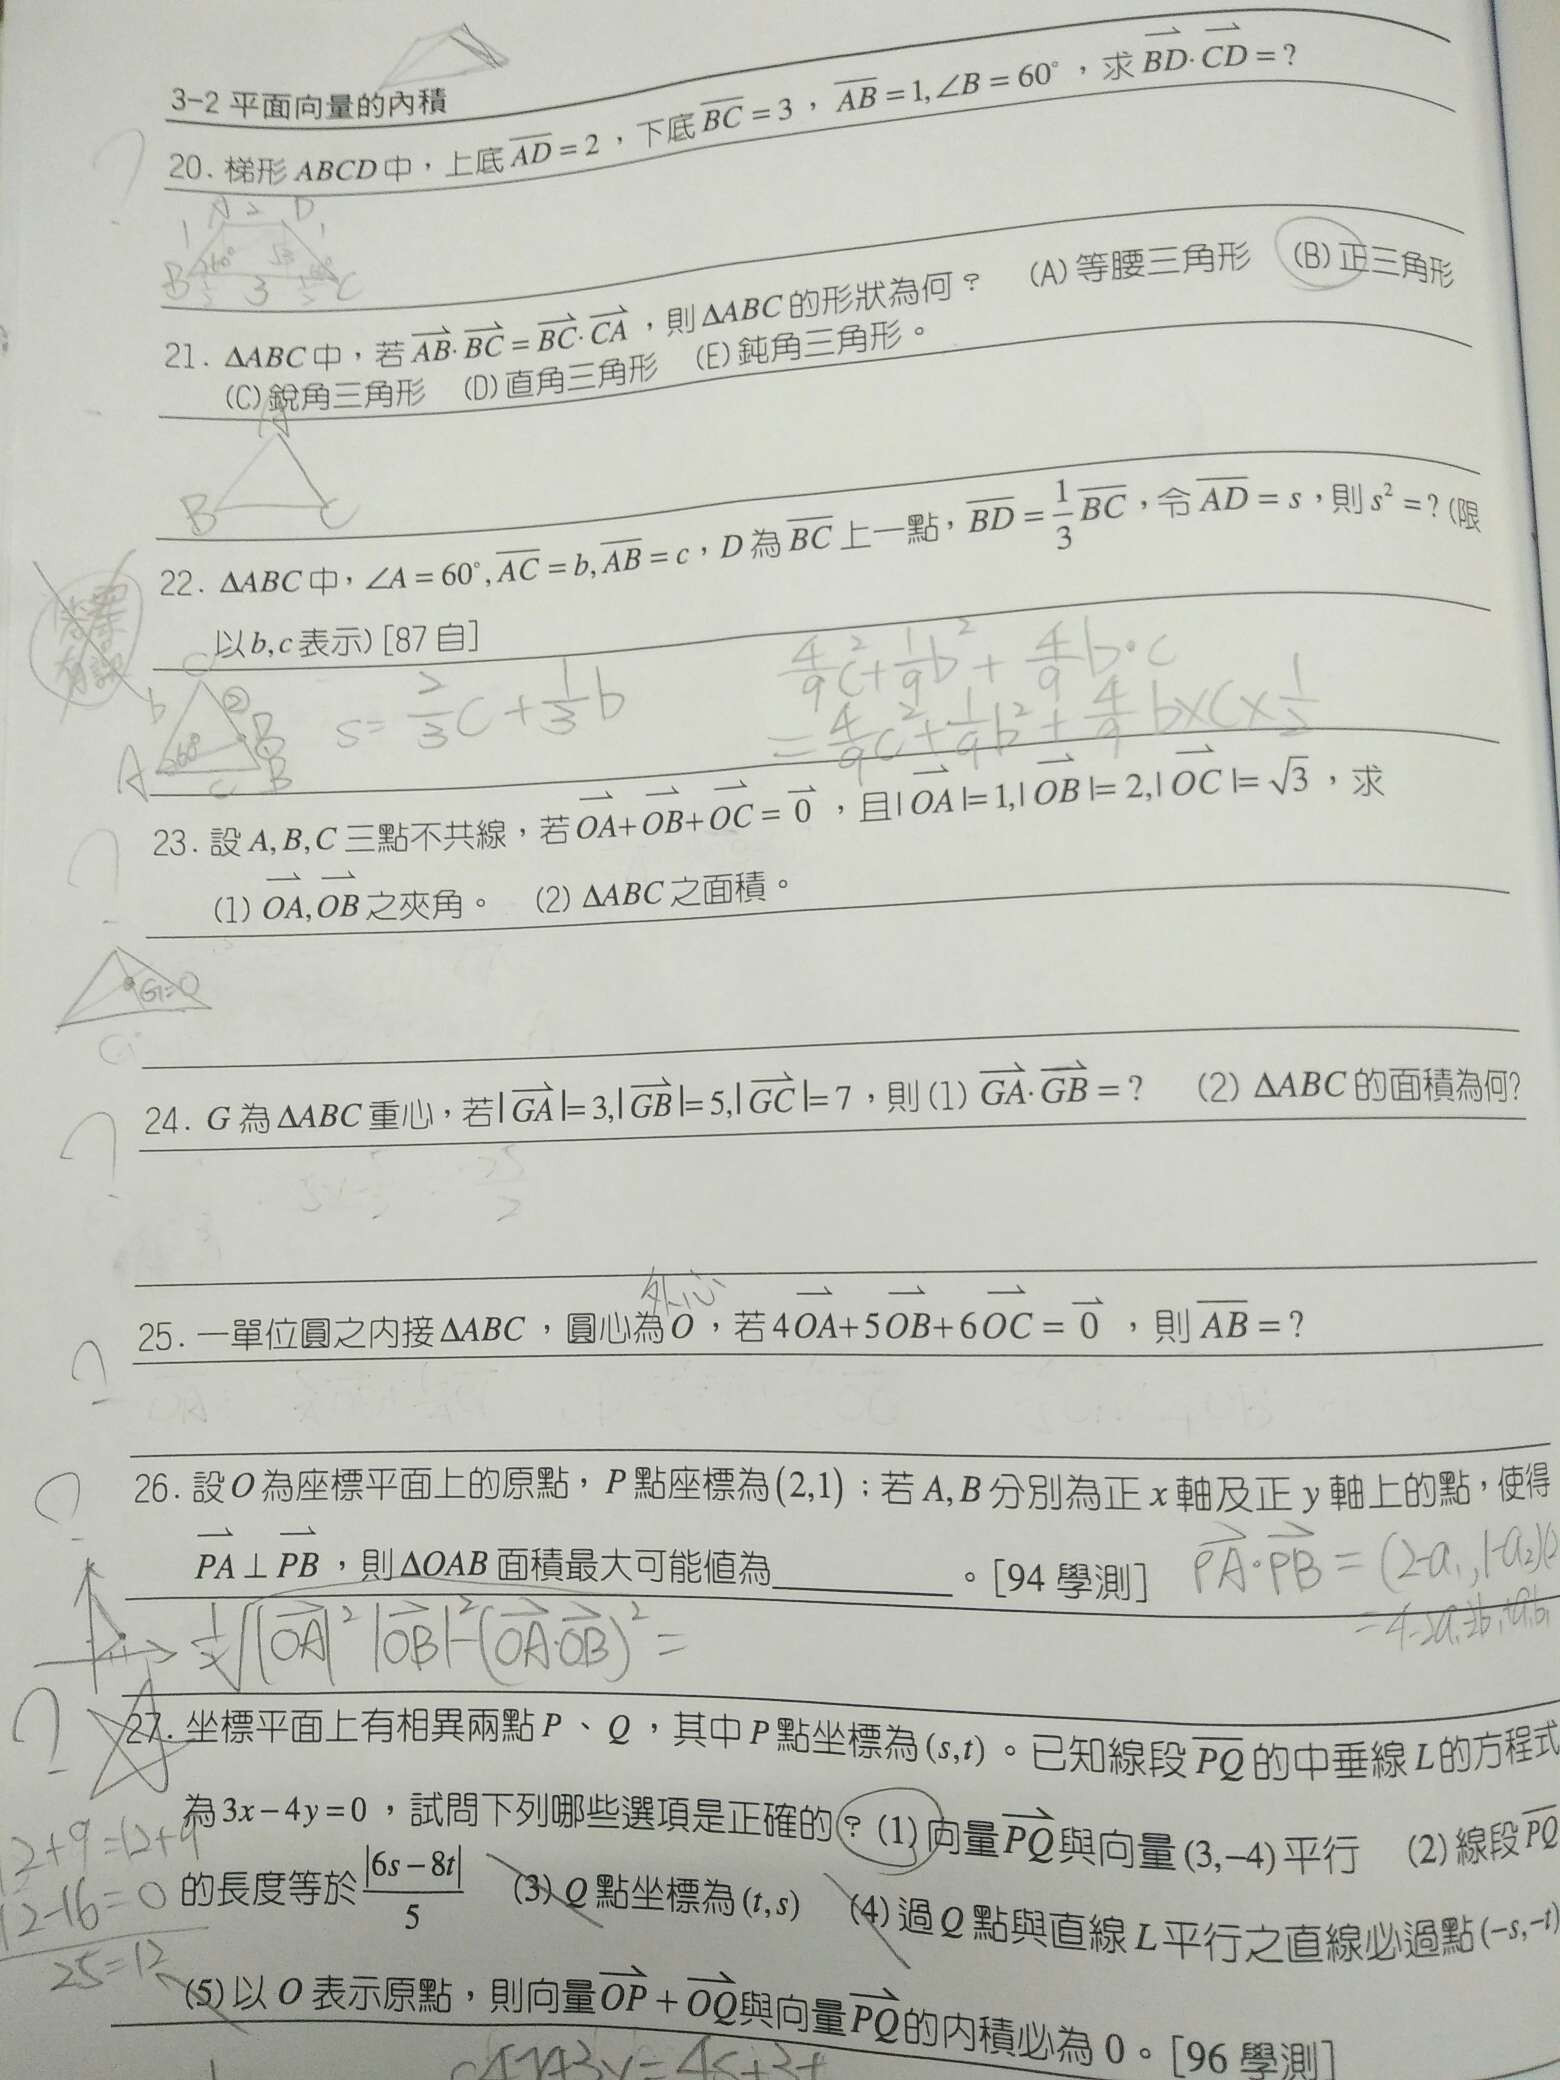 3-2 平面向量的內積
20. 梯形 ABCD 中，上底 AD = 2，下底 BC = 3，AB = 1, ∠B = 60°，求 BD·CD = ?
A 2 D
1 1
60° √3 60°
B 1/2 3 1/2 C
21. ΔABC 中，若 AB·BC = BC·CA，則 ΔABC 的形狀為何？ (A) 等腰三角形 (B) 正三角形
(C) 銳角三角形 (D) 直角三角形 (E) 鈍角三角形。
A
B C
22. ΔABC 中，∠A = 60°, AC = b, AB = c，D 為 BC 上一點，BD = 1/3 BC，令 AD = s，則 s² = ? (限
以 b, c 表示) [87 自]
C
b ②
60° B
A C B
s = 2/3 c + 1/3 b
4/9 c² + 1/9 b² + 4/9 b·c
= 4/9 c² + 1/9 b² + 4/9 b×c×1/2
23. 設 A, B, C 三點不共線，若 OA + OB + OC = 0，且 |OA| = 1, |OB| = 2, |OC| = √3，求
(1) OA, OB 之夾角。 (2) ΔABC 之面積。
G=O
24. G 為 ΔABC 重心，若 |GA| = 3, |GB| = 5, |GC| = 7，則 (1) GA·GB = ? (2) ΔABC 的面積為何?
外心
25. 一單位圓之內接 ΔABC，圓心為 O，若 4OA + 5OB + 6OC = 0，則 AB = ?
26. 設 O 為座標平面上的原點，P 點座標為 (2,1)；若 A, B 分別為正 x 軸及正 y 軸上的點，使得
PA ⊥ PB，則 ΔOAB 面積最大可能值為__________。[94 學測]
PA·PB = (2-a₁, 1-a₂)
1/2 √|OA|²|OB|²-(OA·OB)² =
27. 坐標平面上有相異兩點 P、Q，其中 P 點坐標為 (s,t)。已知線段 PQ 的中垂線 L 的方程式
為 3x - 4y = 0，試問下列哪些選項是正確的？(1) 向量 PQ 與向量 (3,-4) 平行 (2) 線段 PQ
的長度等於 |6s - 8t|/5 (3) Q 點坐標為 (t,s) (4) 過 Q 點與直線 L 平行之直線必過點 (-s,-t)
(5) 以 O 表示原點，則向量 OP + OQ 與向量 PQ 的內積必為 0。[96 學測]
12+9=12+9
12-16=0
25=12
4x+3y=4s+3t